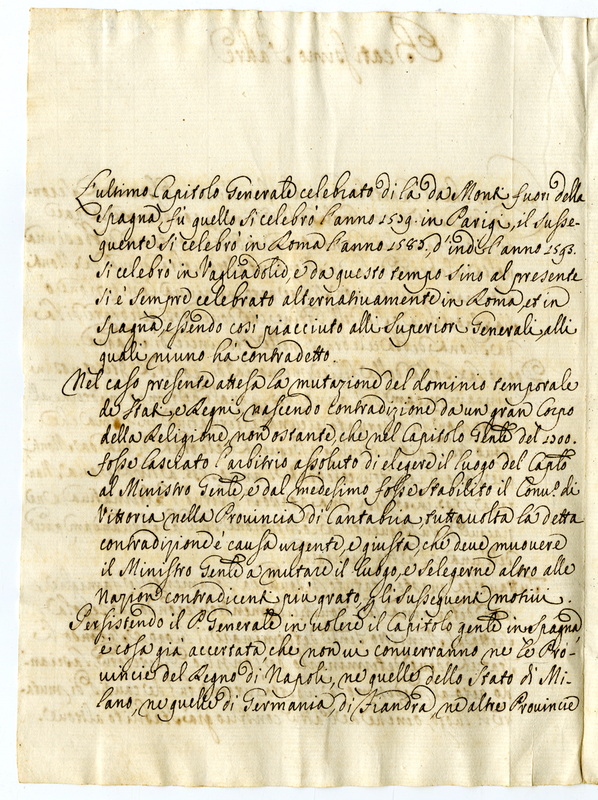 L'ultimo Capitolo Generale celebrato di là da Monti fuori della
Spagna fù quello si celebrò l'anno 1579. in Parigi, il susse-
guente si celebrò in Roma l'anno 1583., d'indi l'anno 1593.
si celebrò in Vagliadolid, e da questo tempo sino al presente
si è sempre celebrato alternativamente in Roma, et in
Spagna, essendo così piacciuto alli Superiori Generali, alli
quali niuno hà contradetto.
Nel caso presente attesa la mutazione del dominio temporale
de Stati, e Regni, nascendo contradizione da un gran Corpo
della Religione, non ostante, che nel Capitolo Gentle del 1700.
fosse lasciato l'arbitrio assoluto di elegere il luogo del Caplo
al Ministro Gentle, e dal medesimo fosse stabilito il Conv.o di
Vittoria nella Provincia di Cantabria, tuttavolta la detta
contradizione è causa urgente, e giusta, che deve muovere
il Ministro Gentle a mutare il luogo, e selegerne altro alle
Nazioni contradicenti più grato, gli susseguenti motivi.
Persistendo il P. Generale in volere il Capitolo gentle in Spagna
è cosa già accertata che non vi converranno ne le Pro-
vincie del Regno di Napoli, ne quelle dello Stato di Mi-
lano, ne quelle di Germania, di Fiandra, ne altre Provincie